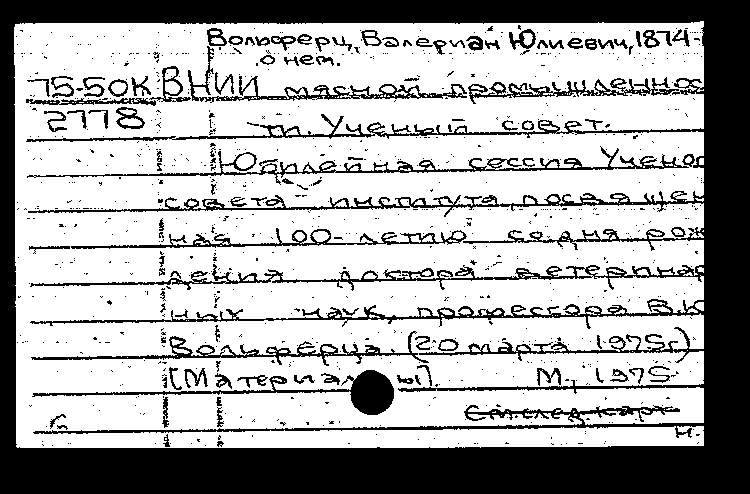 Вольферц, Валериан Юлиевич, 1874-
о нем.
75-50К ВНИИ мясной промышленнос
2778 ти. Ученый совет.
Юбилейная сессия Ученог
совета института, посвящен
ная 100-летию со дня рож
дения доктора ветеринар
ных наук, профессора В.Ю
Вольферца. (20 марта 1975г)
[Материалы]. М., 1975
См.след.карт
н.